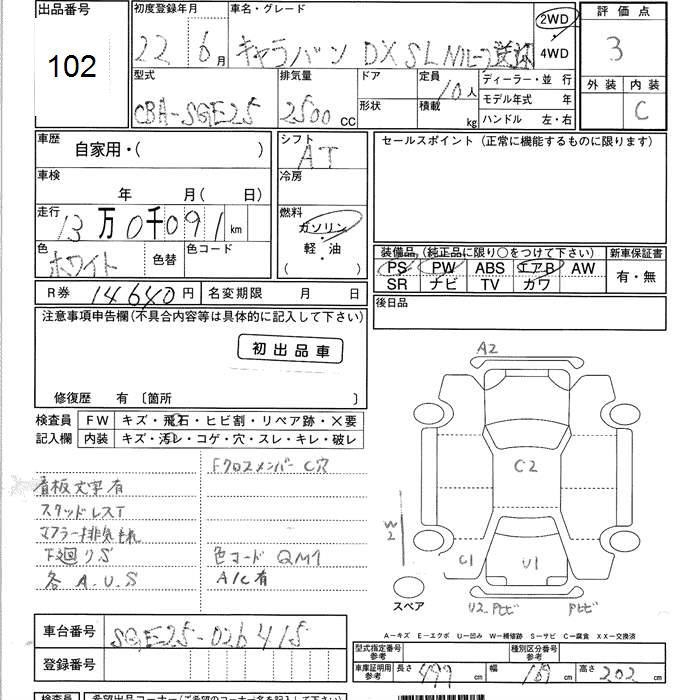 出品番号
102
初度登録年月
22 6月
車名・グレード
キャラバン DX SLM
2WD
4WD
評価点
3
外装 内装
C
型式
CBA-SGE25
排気量
2500 CC
ドア
形状
定員
10人
積載
kg
ディーラー・並行
モデル年式 年
ハンドル 左・右
車歴
自家用・( )
シフト
AT
セールスポイント(正常に機能するものに限ります)
車検
年 月( 日)
冷房
走行
13万0千091km
燃料
ガソリン
軽・油
( )
色
ホワイト
色替
色コード
装備品(純正品に限り○をつけて下さい)
新車保証書
PS PW ABS エアB AW
SR ナビ TV カワ
有・無
R券 14640円
名変期限 月 日
後日品
注意事項申告欄(不具合内容等は具体的に記入して下さい)
初出品車
修復歴 有〔箇所 〕
検査員
記入欄
FW キズ・飛石・ヒビ割・リペア跡・×要
内装 キズ・汚レ・コゲ・穴・スレ・キレ・破レ
Fクロスメンバー C穴
看板文字有
スタッドレスT
マフラー排気もれ
下廻りS
色コード QM1
各 A.U.S
A/C有
A2
C2
W2
C1
U1
U2
スペア
A-キズ E-エクボ U-凹み W-補修跡 S-サビ C-腐食 XX-交換済
車台番号
SGE25-026415
登録番号
型式指定番号
参考
種別区分番号
参考
車庫証明用
参考
長さ 499cm
幅 169cm
高さ 202cm
検査員
希望出品コーナー(ご希望のコーナー名を記入して下さい)